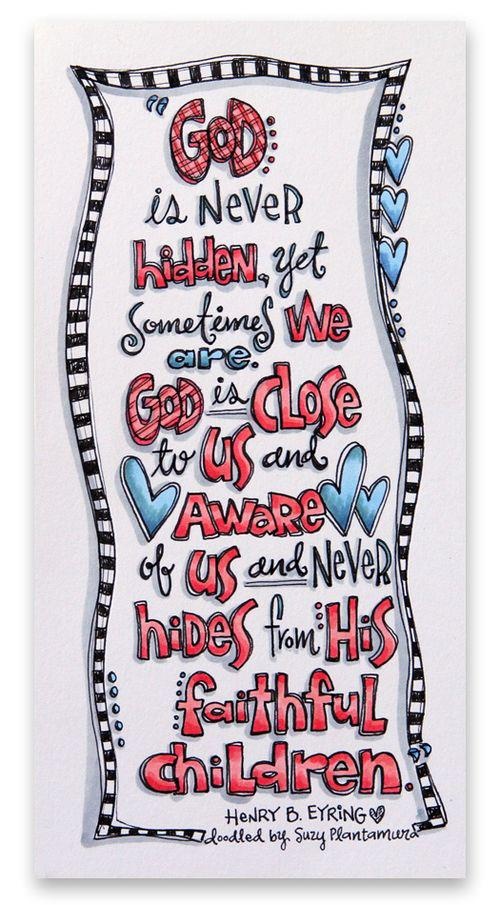 "GOD
is NeveR
hidden, yet
sometimes We
are.
GOD is CLOSe
to US and
AWARe
of US and NeveR
hiDeS from His
faithfuL
chiLdren."
HENRY B. EYRING
doodled by: Suzy Plantamura